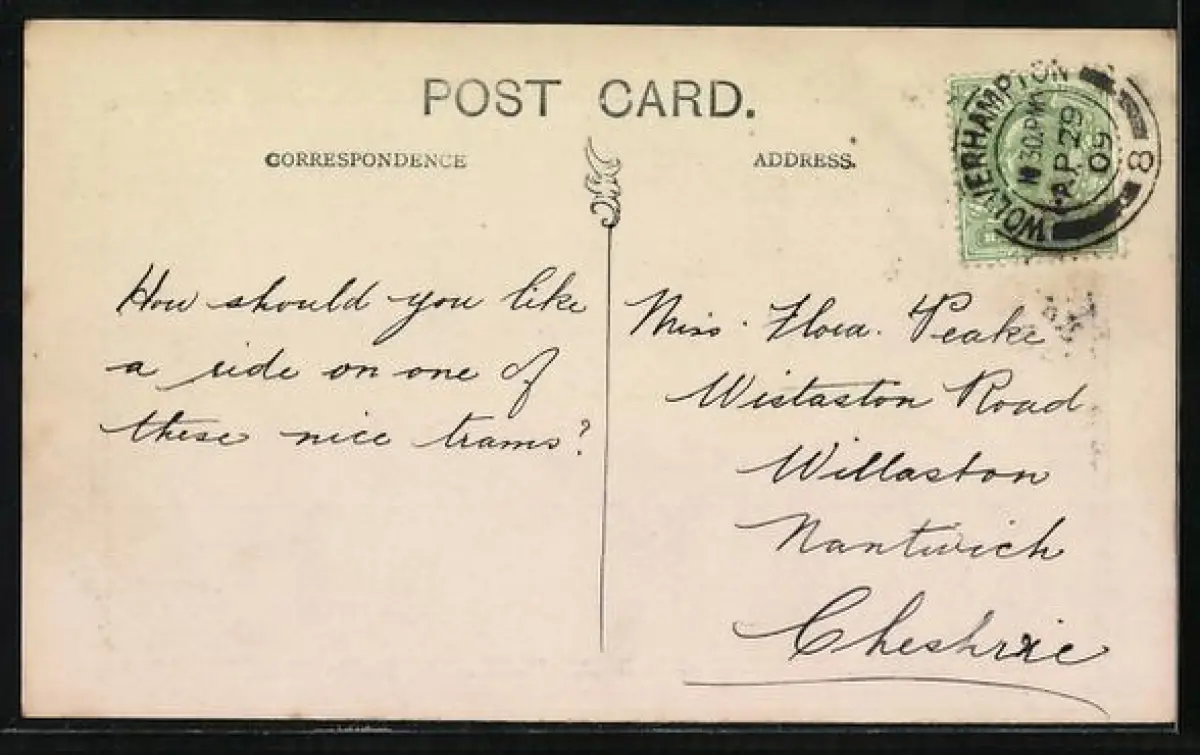 POST CARD.
CORRESPONDENCE
ADDRESS.
WOLVERHAMPTON
30 PM
AP 29
09
8
How should you like
a ride on one of
these nice trams?
Miss. Flora. Peake
Wistaston Road
Willaston
Nantwich
Cheshire